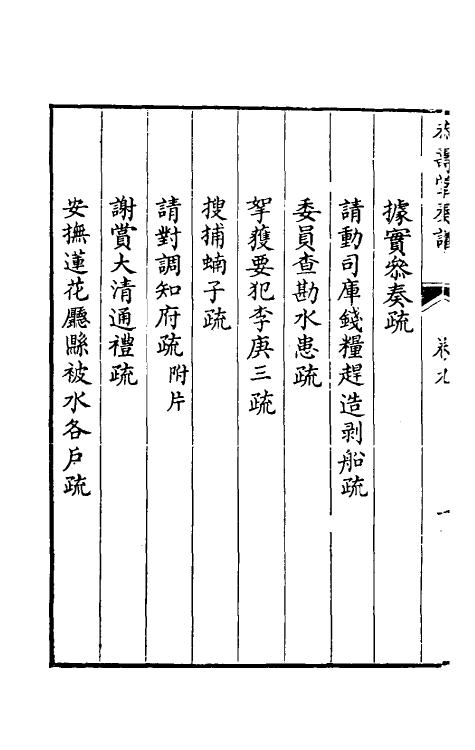 卷九
一
據實叅奏疏
請動司庫錢糧趕造剥船疏
委員查勘水患疏
拏獲要犯李庚三疏
搜捕蝻子疏
請對調知府疏 附片
謝賞大清通禮疏
安撫蓮花廳縣被水各戶疏